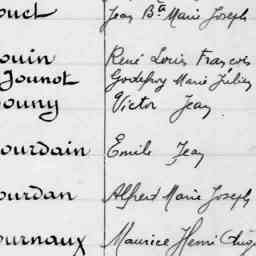 ouet Jean Bta Marie Joseph
ouin René Louis François
Jounot Godefroy Marie Julien
ouny Victor Jean
ourdain Emile Jean
ourdan Alfred Marie Joseph
ournaux Maurice Henri Aug